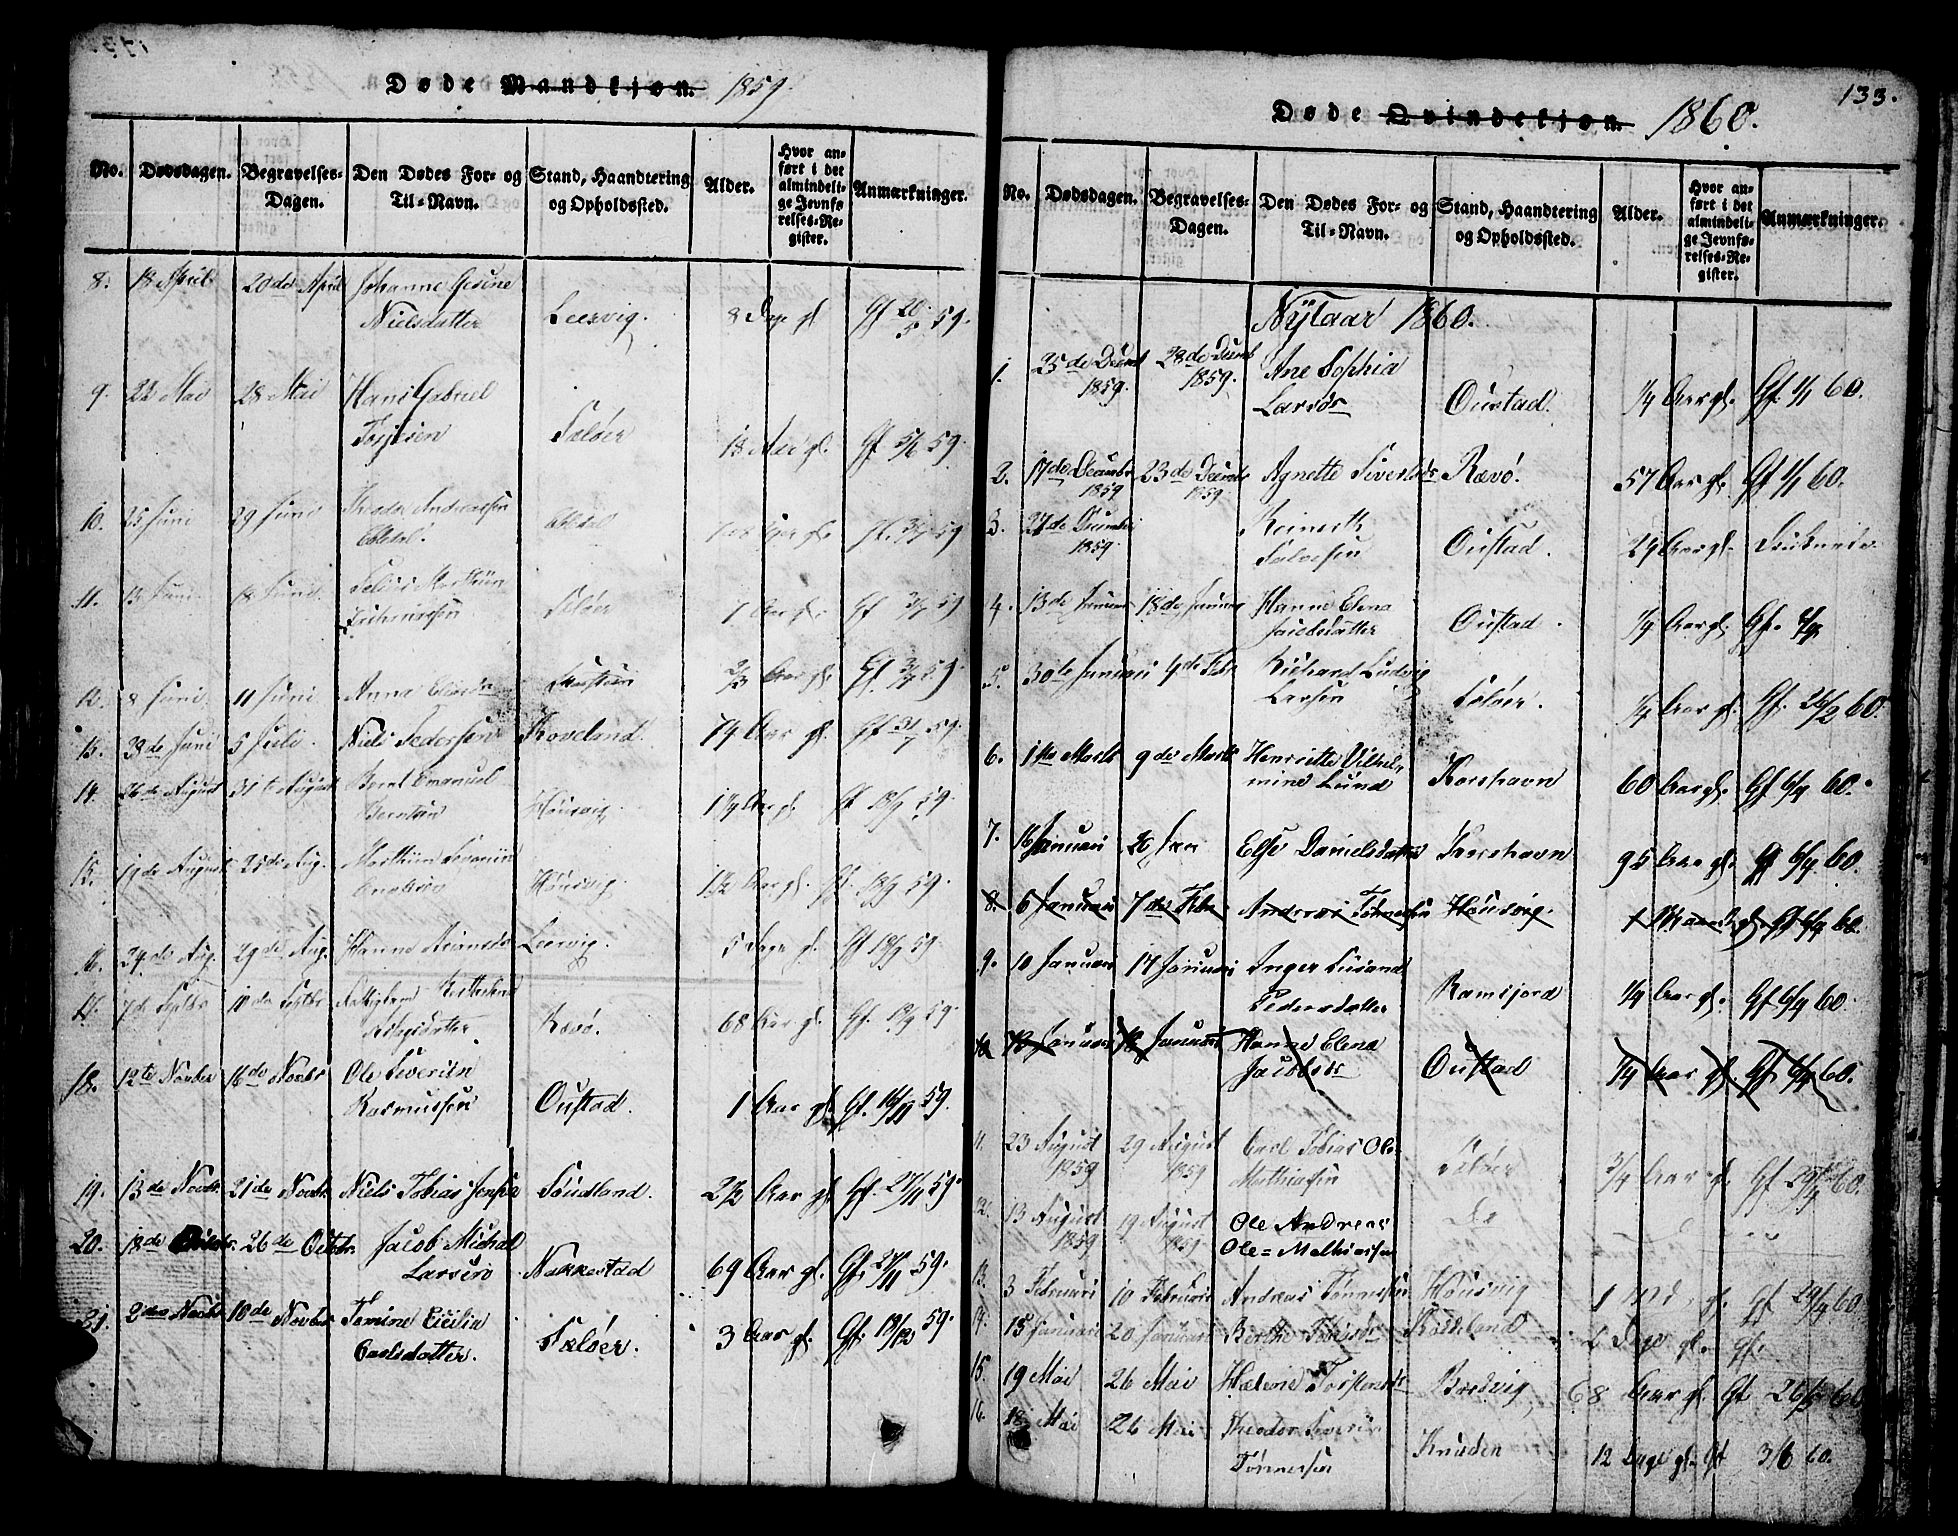 Døde Mandkjøn. 1859.
No. Dødsdagen. Begravelses-Dagen. Den Dødes For- og Til-Navn. Stand, Haandtering og Opholdssted. Alder. Hvor anført i det almindelige Jevnførelses-Register. Anmærkninger.
8. 18 April 20de April Johanne Gesine
Nielsdatter Leervig. 8 Dage gl. Gf 20/5 59.
9. 22 Mai 28 Mai Hans Gabriel
Torjesen Sæløer 18 Aar gl. Gf 5/6 59.
10. 25 Juni 29 Juni Andreassen
11. 13 Juni 18 Juni
Sæløer 1 Aar gl. Gf 3/7 59
12. 8 Juni 11 Juni Anna 2/3 Aar gl. Gf. 3/7 59
13. 28de Juni 5 Juli. Niels Pedersen Roveland. 74 Aar gl. Gf 31/7 59.
14. 26de August 31te August Bernt Emanuel
Berntsen Housvig. 1 1/4 Aar gl. Gf 18/9 59.
15. 19de August 25de Aug. Mathias Severin
Housvig. 1 1/2 Aar gl. Gf. 18/9 59.
16. 24de Aug. 29de Aug. Hanne Leervig. 5 Dage gl. Gf 18/9 59.
17. 7de Septbr 10de Septbr
Rævø. 68 Aar gl. Gf. 59.
18. 12te Novber 16de Novbr Ole Severin
Rasmussen Oustad. 1 Aar gl. Gf. 59.
19. 13de Novbr. 21de Novbr. Niels Tobias Jensen Soudland. 2 1/2 Aar gl. Gf. 27/11 59.
20. 18de Octobr. 26de Octbr. Jacob Michal
Larsen Nakkestad 69 Aar gl. Gf. 27/11 59.
21. 2den Novbr 10de Novber Tomine Cicilia
Carlsdatter. Sæløer. 3 Aar gl. Gf. 18/12 59.
133.
Døde Qvindekjøn. 1860.
No. Dødsdagen. Begravelses-Dagen. Den Dødes For- og Til-Navn. Stand, Haandtering og Opholdssted. Alder. Hvor anført i det almindelige Jevnførelses-Register. Anmærkninger.
Nytaar 1860.
1. 25de Decmb 1859. 28de Decmb 1859. Ane Sophia
Larsdr Oustad. 1/4 Aar gl. Gf. 1/1 60.
2. 17de Decembr 1859 23de Decmbr 1859. Agnette Sivertsdr Rævø. 57 Aar gl. Gf 1/1 60.
3. 27de Decembr 1859. Reinerth
Salvesen Oustad. 29 Aar gl. Druknede
4. 13de Januar 18de Januar Hanne Elena
Jacobsdatter Oustad. 1/4 Aar gl. Gf.
5. 30te Januari 4de Febr Richard Ludvig
Larsen Sæløer. 1/4 Aar gl. Gf. 26/2 60.
6. 1ste Marts 9de Marts Henriette Vilhel-
mine Lund Korshavn 60 Aar gl. Gf 6/4 60.
7. 16 Januari 26 Jan Else Danielsdatter Korshavn 95 Aar gl. Gf 6/4 60.
8. 6 Januari 7de Febr Andreas Tønnesen Housvig. 1 Maaned gl. Gf 6/4 60.
9. 10 Januari 17 Januari Inger Susand
Pedersdatter Ramsfjord 1/4 Aar gl. Gf 6/4 60.
10. 13 Januari 18 Januari Hanne Elena
Jacobsdr Oustad 1/4 Aar gl. Gf. 6/4 60.
11. 23 August 1859 29 August 1859 Carl Tobias Ole
Mathiasen Sæløer 3/4 Aar gl. Gf 29/4 60.
12. 13 August 1859 19 August 1859 Ole Andreas
Ole-Mathiasen Do
13. 3 Februari 10 Februari Andreas Tønnesen Housvig 1 Md. gl. Gf 29/4 60
14. 15 Januari 20 Januari Berthe Dage gl. Gf.
15. 19 Mai 26 Mai Helene Torstensdr Bredvig 68 Aar gl. Gf 26/5 60
16. 18 Mai 26 Mai Theodor Severin
Tønnessen Knuden 12 Dage gl. Gf 3/6 60.